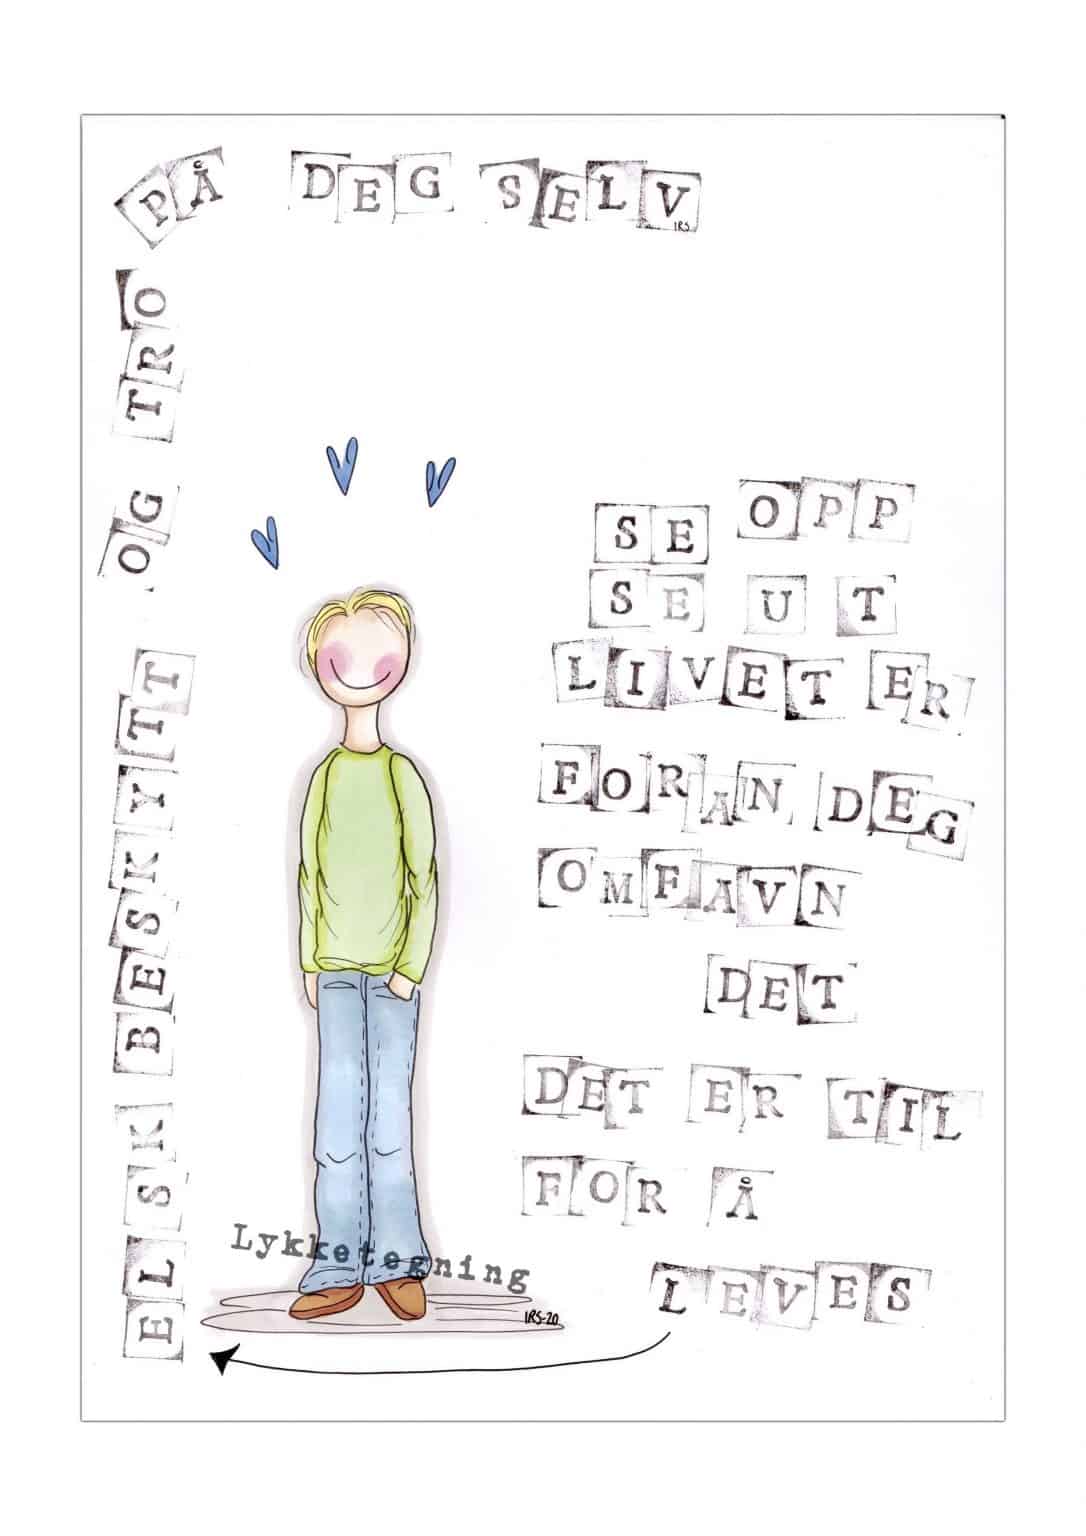 SE OPP
SE UT
LIVET ER
FORAN DEG
OMFAVN
DET
DET ER TIL
FOR Å
LEVES
ELSK BESKYTT OG TRO
PÅ DEG SELV
IRS
Lykketegning
IRS-20